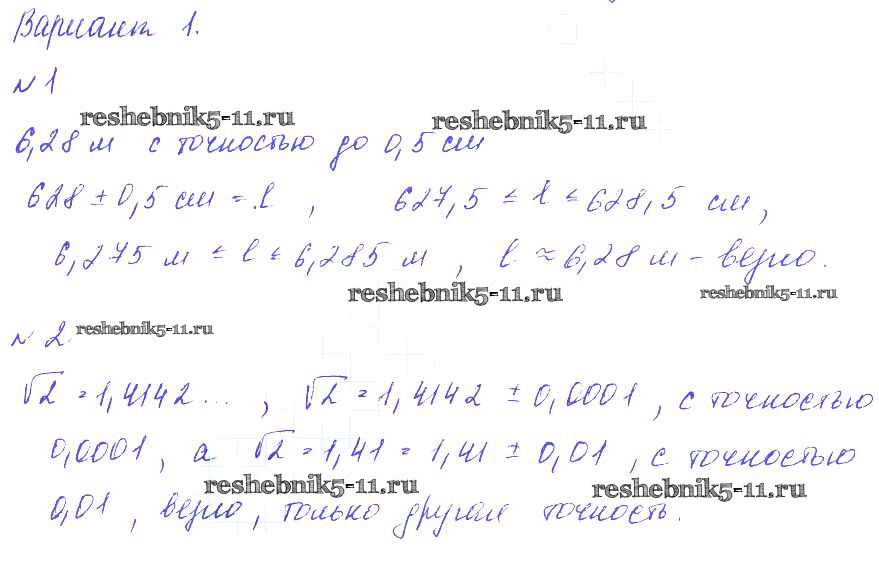 Вариант 1.
№ 1
reshebnik5-11.ru reshebnik5-11.ru
6,28 м с точностью до 0,5 см
628 ± 0,5 см = l , 627,5 ≤ l ≤ 628,5 см,
6,275 м ≤ l ≤ 6,285 м , l ≈ 6,28 м - верно.
reshebnik5-11.ru reshebnik5-11.ru
№ 2. reshebnik5-11.ru
√2 = 1,4142... , √2 = 1,4142 ± 0,0001 , с точностью
0,0001 , а √2 = 1,41 = 1,41 ± 0,01 , с точностью
reshebnik5-11.ru reshebnik5-11.ru
0,01 , верно , только другая точность.